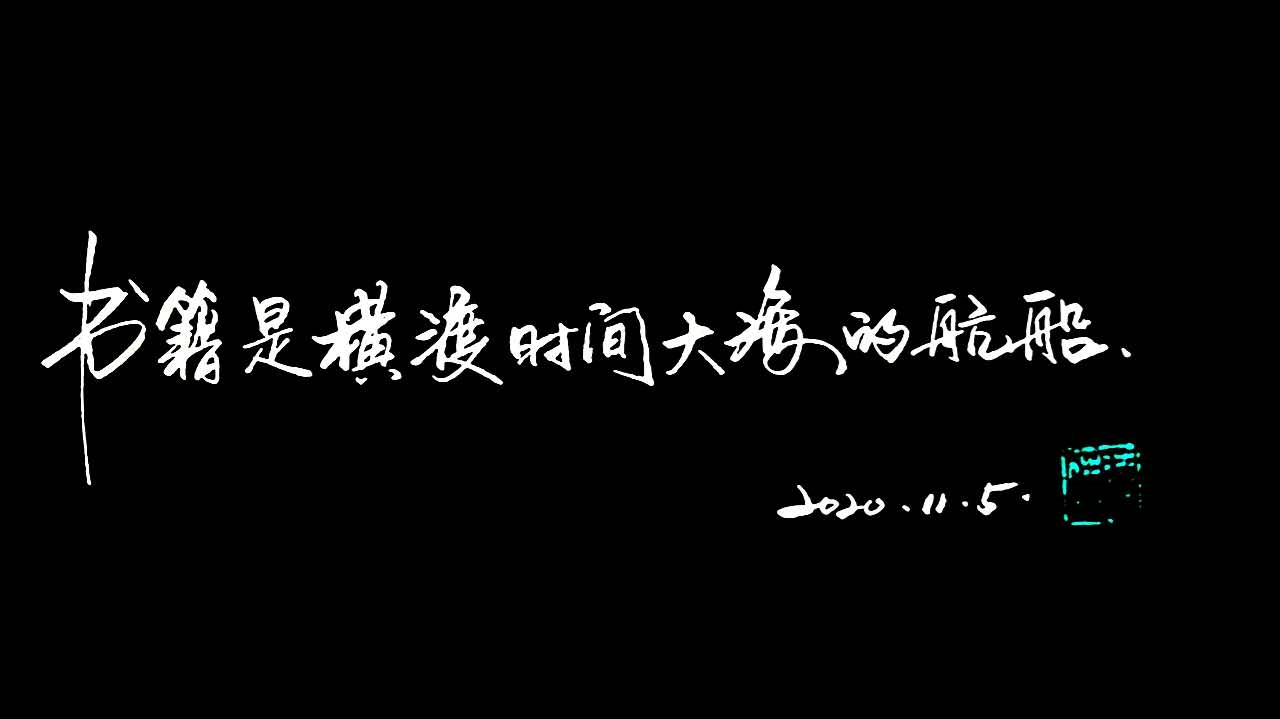 书籍是横渡时间大海的航船.
2020.11.5.